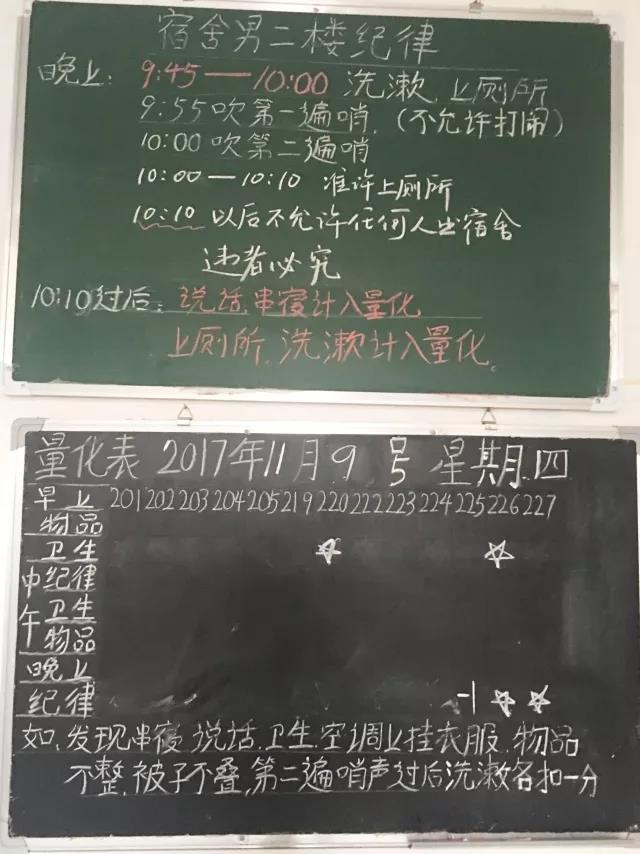 宿舍男二楼纪律
晚上: 9:45——10:00 洗漱、上厕所
9:55吹第一遍哨.(不允许打闹)
10:00吹第二遍哨
10:00——10:10 准许上厕所
10:10以后不允许任何人出宿舍
违者必究
10:10过后: 说话.串寝计入量化
上厕所、洗漱计入量化。
量化表 2017年11月9号 星期四
早上 201 202 203 204 205 219 220 222 223 224 225 226 227
物品
卫生 ☆ ☆
中午 纪律
卫生
物品
晚上
纪律 -1 ☆ ☆
如、发现串寝、说话.卫生.空调上挂衣服、物品
不整.被子不叠.第二遍哨声过后洗漱各扣一分